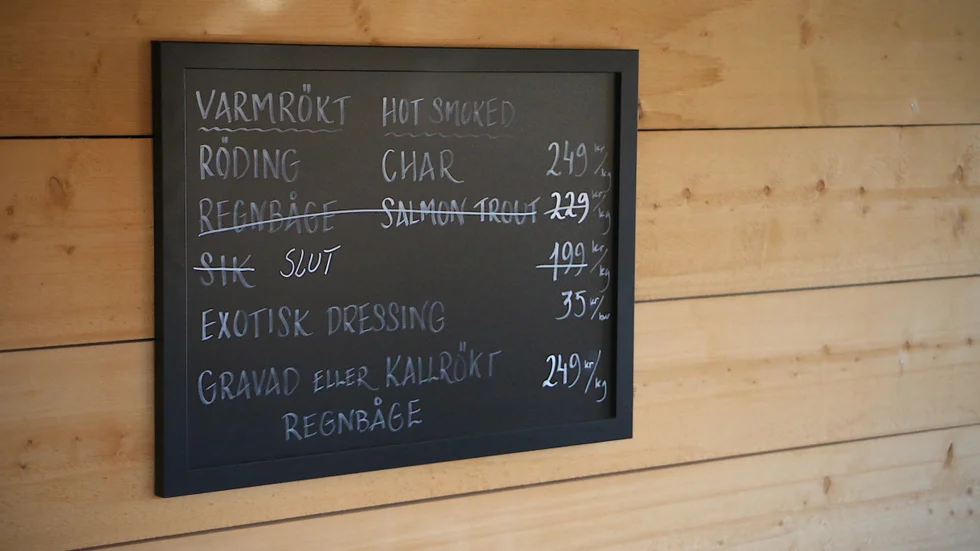 VARMRÖKT HOT SMOKED
RÖDING CHAR 249 kr/kg
REGNBÅGE SALMON TROUT 229 kr/kg
SIK SLUT 199 kr/kg
EXOTISK DRESSING 35 kr/
GRAVAD ELLER KALLRÖKT 249 kr/kg
REGNBÅGE